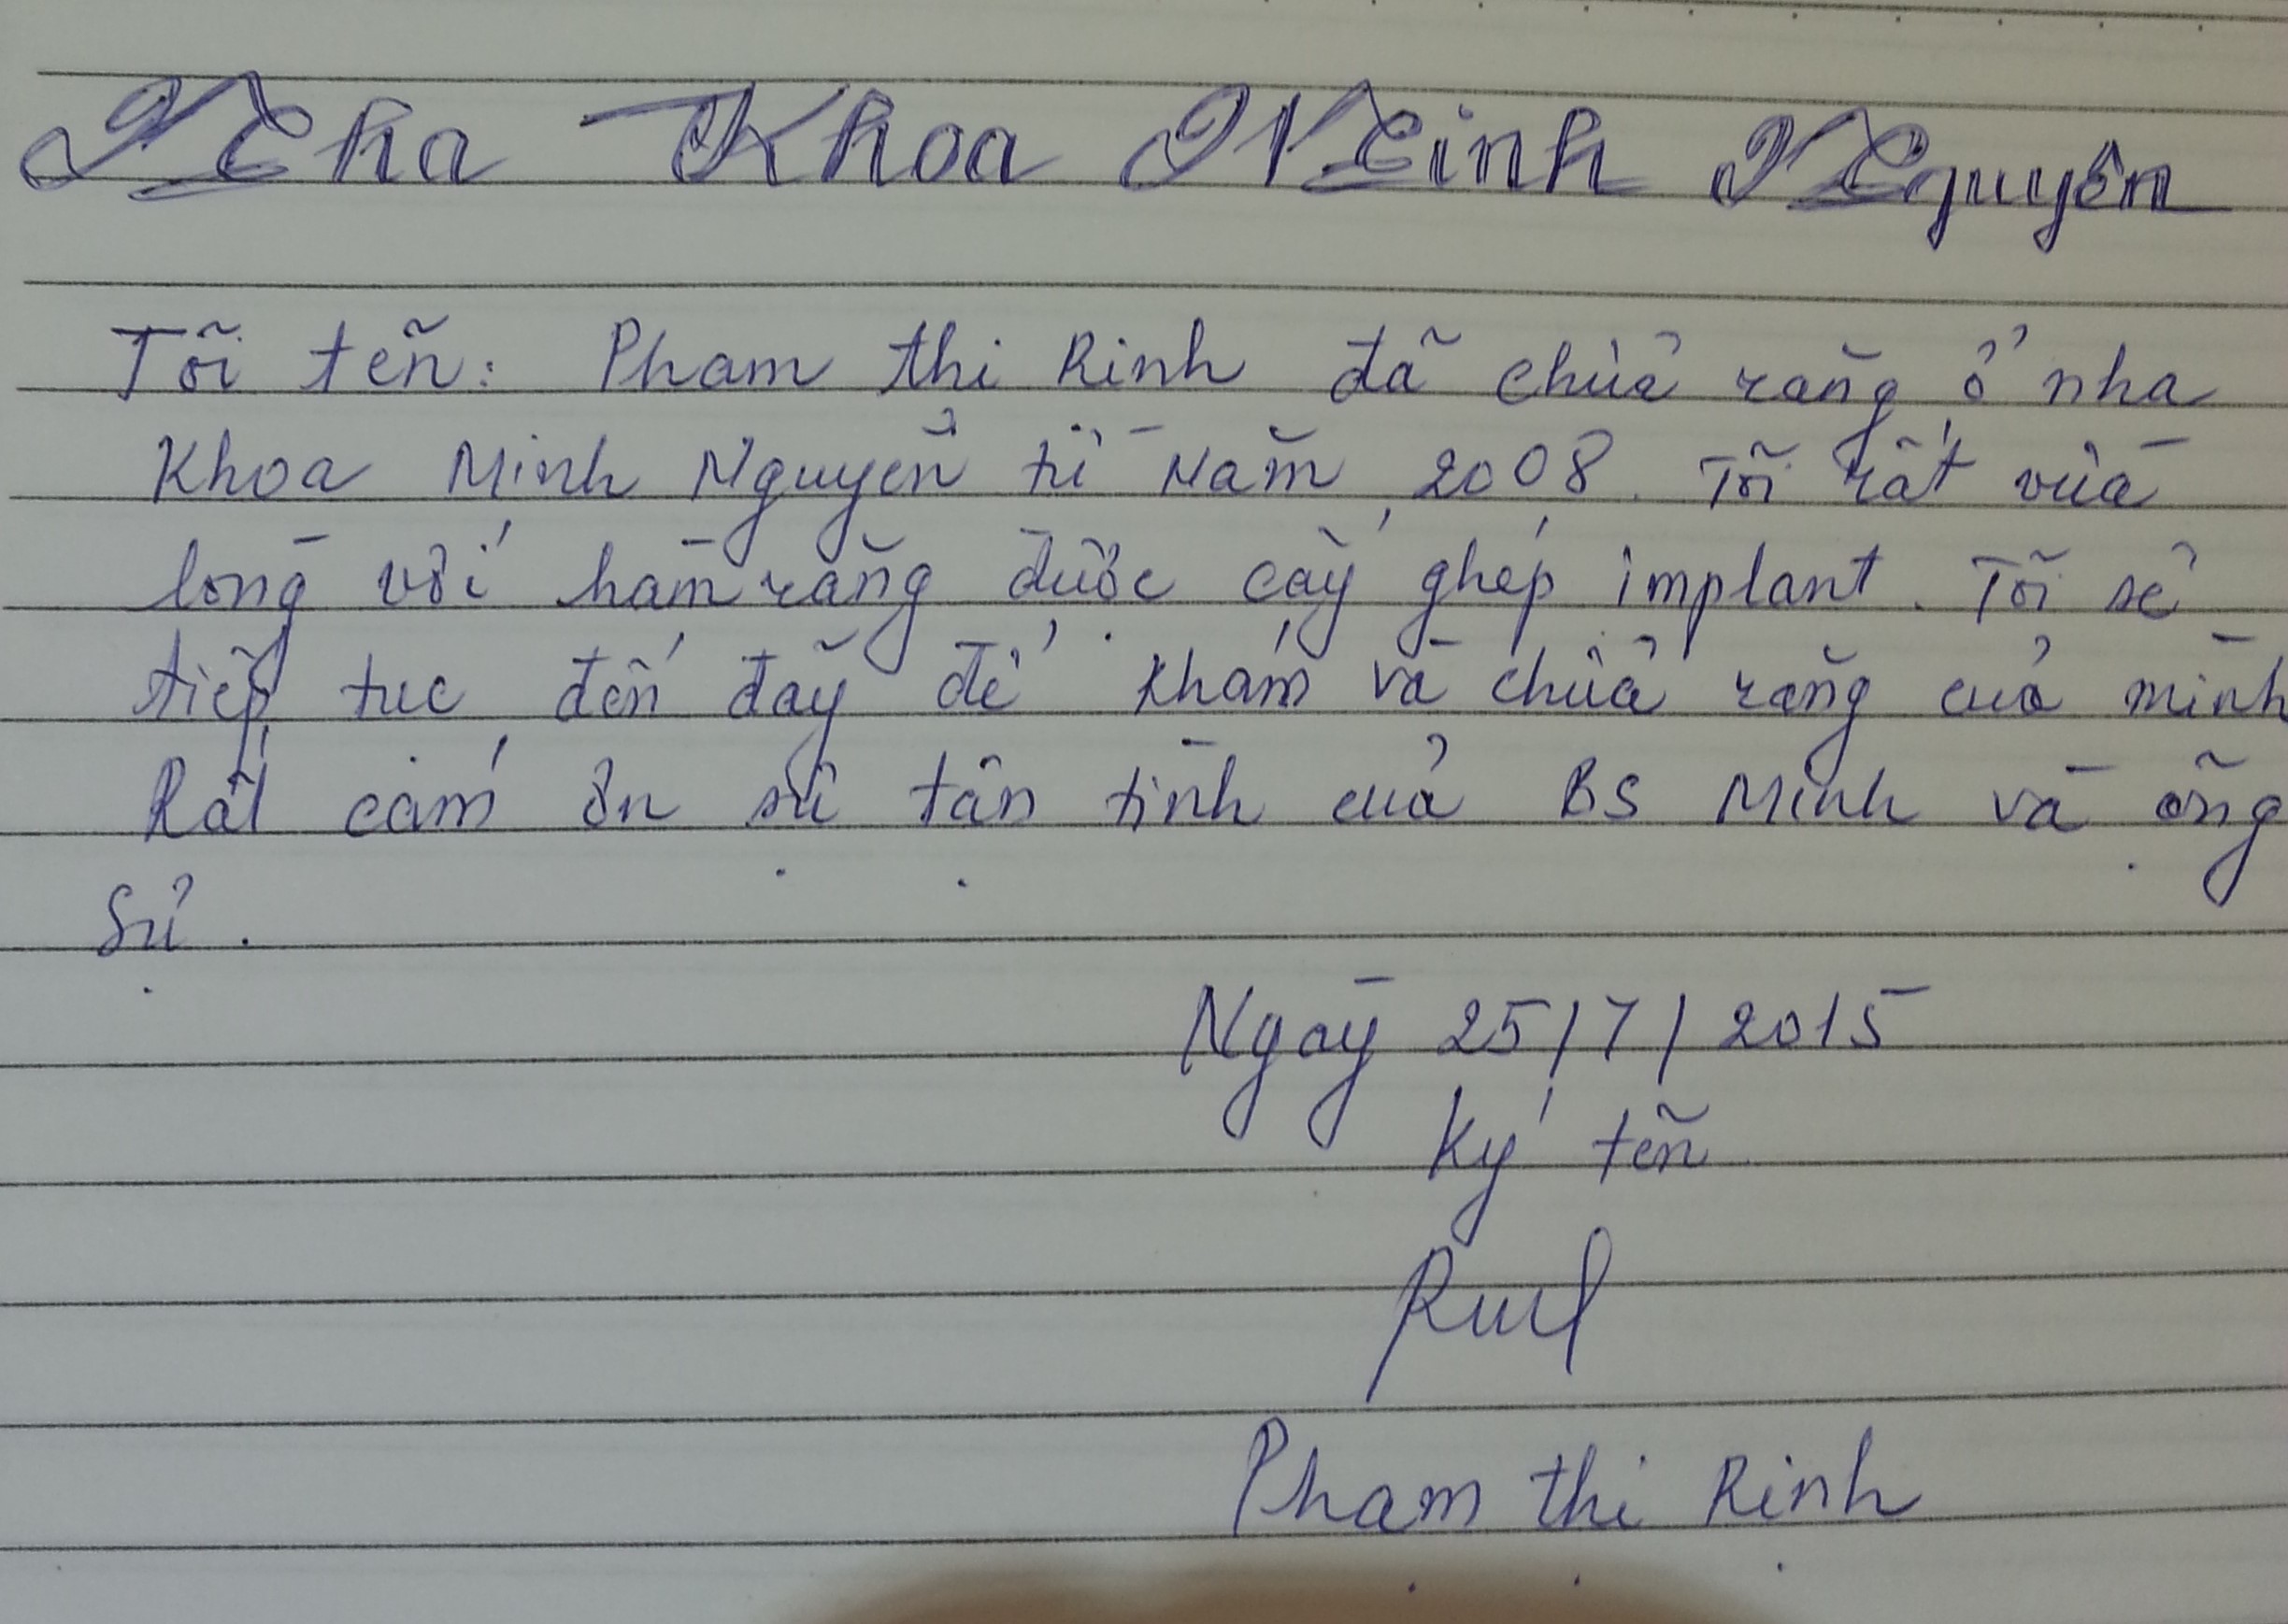 Nha Khoa Minh Nguyên
Tôi tên: Phạm thị Rịnh đã chữa răng ở nha
Khoa Minh Nguyên từ Năm 2008. Tôi rất vừa
lòng với hàm răng được cấy ghép implant. Tôi sẽ
tiếp tục đến đây để khám và chữa răng của mình
Rất cám ơn sự tận tình của BS Minh và ông
Sự.
Ngày 25/7/2015
Ký tên
Phạm thị Rịnh